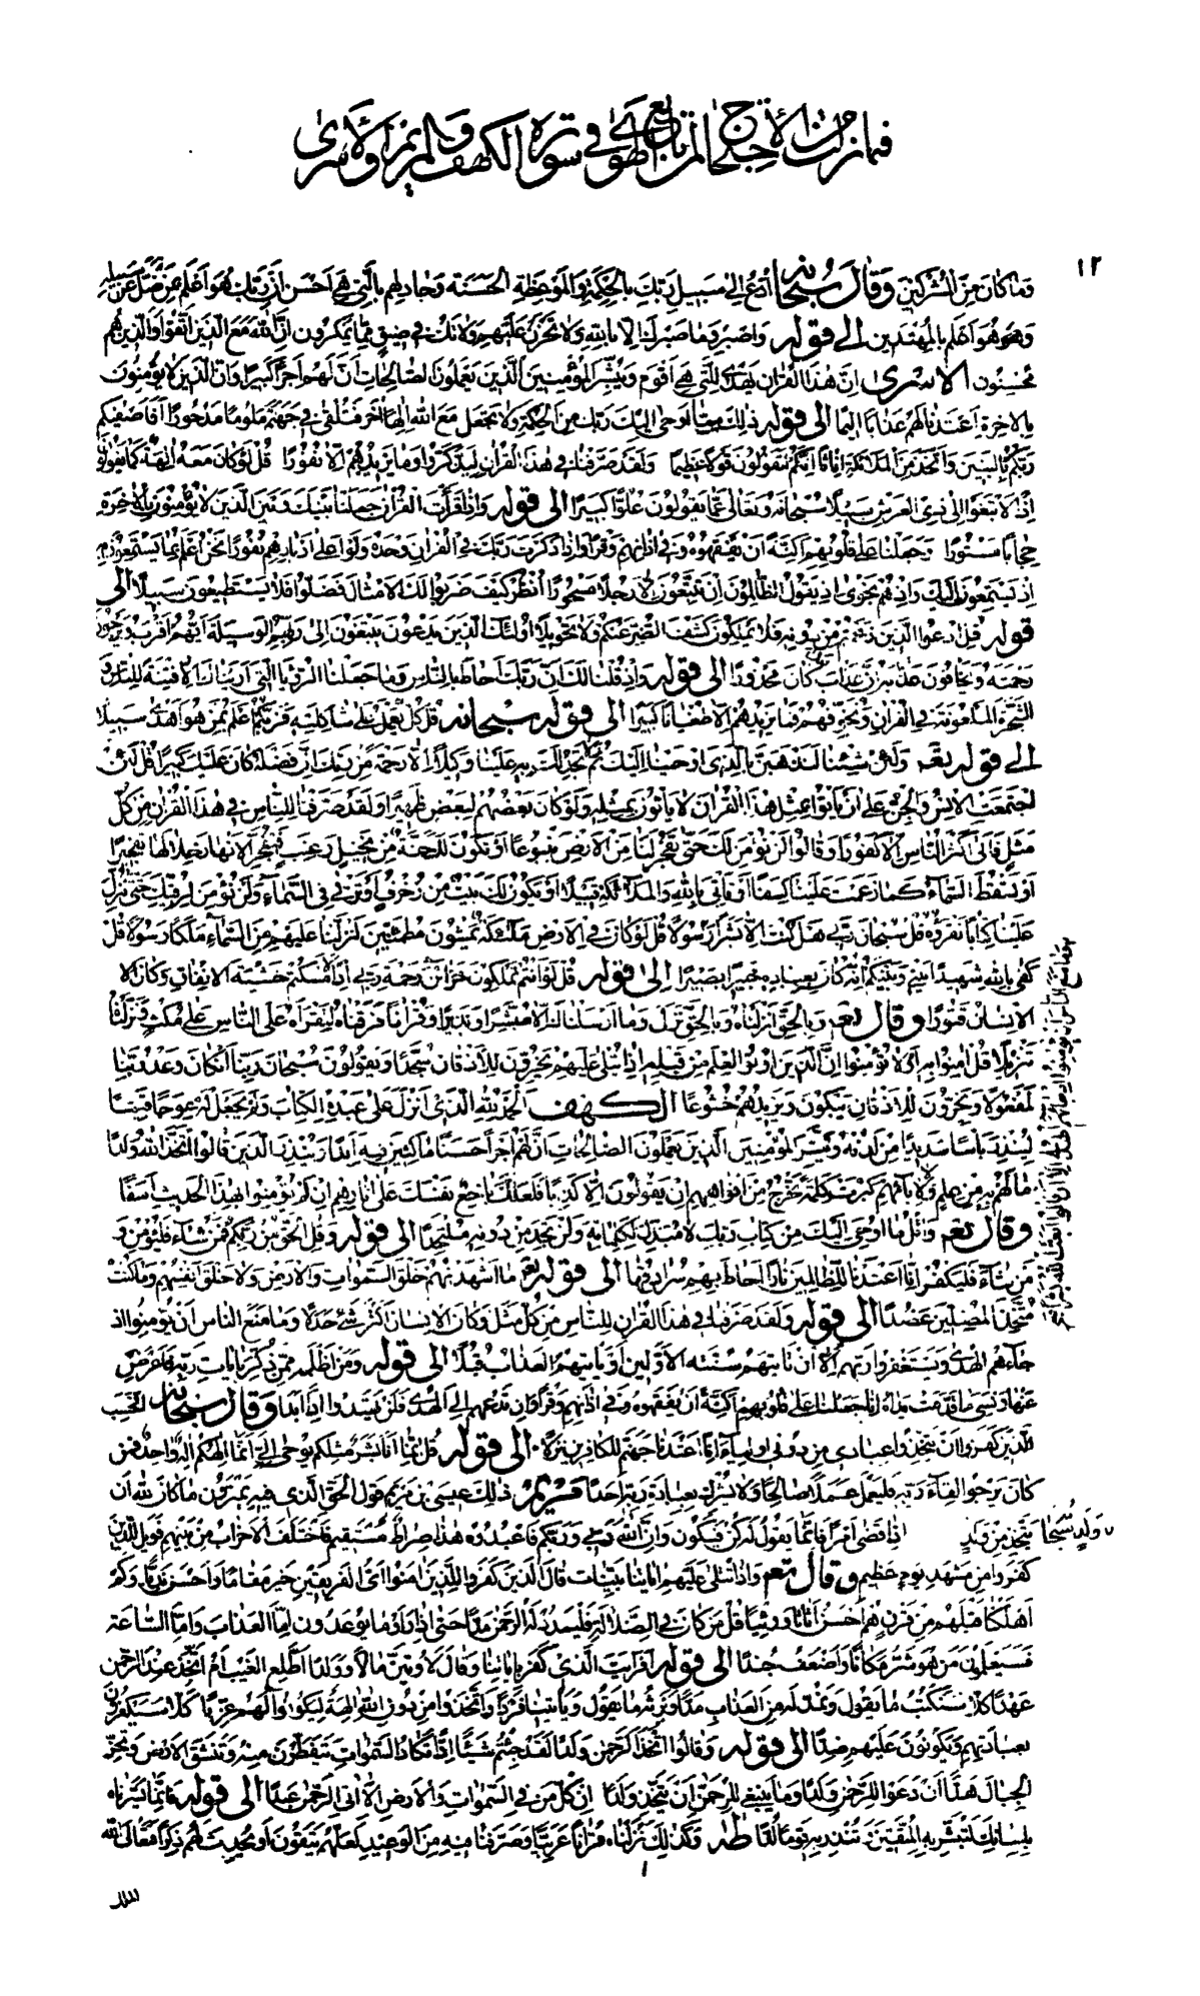 فيما نزل من الاحتجاج المرتابع الهوى في سورة الكهف والمريم والاسرى
١٢
وما كان من المشركين وقال سبحانه ادع الى سبيل ربك بالحكمة والموعظة الحسنة وجادلهم بالتي هي احسن ان ربك هو اعلم بمن ضل عن سبيله
وهو اعلم بالمهتدين الى قوله واصبر وما صبرك الا بالله ولا تحزن عليهم ولا تك في ضيق مما يمكرون ان الله مع الذين اتقوا والذين هم
محسنون الاسرى ان هذا القران يهدي للتي هي اقوم ويبشر المؤمنين الذين يعملون الصالحات ان لهم اجرا كبيرا وان الذين لا يؤمنون
بالاخرة اعتدنا لهم عذابا اليما الى قوله ذلك مما اوحى اليك ربك من الحكمة ولا تجعل مع الله الها اخر فتلقى في جهنم ملوما مدحورا افاصفيكم
ربكم بالبنين واتخذ من الملائكة اناثا انكم لتقولون قولا عظيما ولقد صرفنا في هذا القران ليذكروا وما يزيدهم الا نفورا قل لو كان معه الهة كما يقولون
اذا لابتغوا الى ذي العرش سبيلا سبحانه وتعالى عما يقولون علوا كبيرا الى قوله واذا قرات القران جعلنا بينك وبين الذين لا يؤمنون بالاخرة
حجابا مستورا وجعلنا على قلوبهم اكنة ان يفقهوه وفي اذانهم وقرا واذا ذكرت ربك في القران وحده ولوا على ادبارهم نفورا نحن اعلم بما يستمعون به
اذ يستمعون اليك واذ هم نجوى اذ يقول الظالمون ان تتبعون الا رجلا مسحورا انظر كيف ضربوا لك الامثال فضلوا فلا يستطيعون سبيلا الى
قوله قل ادعوا الذين زعمتم من دونه فلا يملكون كشف الضر عنكم ولا تحويلا اولئك الذين يدعون يبتغون الى ربهم الوسيلة ايهم اقرب ويرجون
رحمته ويخافون عذابه ان عذاب ربك كان محذورا الى قوله واذ قلنا لك ان ربك احاط بالناس وما جعلنا الرؤيا التي اريناك الا فتنة للناس
الشجرة الملعونة في القران ونخوفهم فما يزيدهم الا طغيانا كبيرا الى قوله سبحانه قل كل يعمل على شاكلته فربكم اعلم بمن هو اهدى سبيلا
الى قوله تعه ولئن شئنا لنذهبن بالذي اوحينا اليك ثم لا تجد لك به علينا وكيلا الا رحمة من ربك ان فضله كان عليك كبيرا قل لئن
اجتمعت الانس والجن على ان ياتوا بمثل هذا القران لا ياتون بمثله ولو كان بعضهم لبعض ظهيرا ولقد صرفنا للناس في هذا القران من كل
مثل فابى اكثر الناس الا كفورا وقالوا لن نؤمن لك حتى تفجر لنا من الارض ينبوعا او تكون لك جنة من نخيل وعنب فتفجر الانهار خلالها تفجيرا
او تسقط السماء كما زعمت علينا كسفا او تاتي بالله والملائكة قبيلا او يكون لك بيت من زخرف او ترقى في السماء ولن نؤمن لرقيك حتى تنزل
علينا كتابا نقرؤه قل سبحان ربي هل كنت الا بشرا رسولا قل لو كان في الارض ملئكة يمشون مطمئنين لنزلنا عليهم من السماء ملكا رسولا قل
كفى بالله شهيدا بيني وبينكم انه كان بعباده خبيرا بصيرا الى قوله قل لو انتم تملكون خزائن رحمة ربي اذا لامسكتم خشية الانفاق وكان الا
الانسان قتورا وقال تعه وبالحق انزلناه وبالحق نزل وما ارسلناك الا مبشرا ونذيرا وقرانا فرقناه لتقراه على الناس على مكث ونزلناه
تنزيلا قل امنوا به او لا تؤمنوا ان الذين اوتوا العلم من قبله اذا يتلى عليهم يخرون للاذقان سجدا ويقولون سبحان ربنا ان كان وعد ربنا
لمفعولا ويخرون للاذقان يبكون ويزيدهم خشوعا الكهف الحمد لله الذي انزل على عبده الكتاب ولم يجعل له عوجا قيما
لينذر باسا شديدا من لدنه ويبشر المؤمنين الذين يعملون الصالحات ان لهم اجرا حسنا ماكثين فيه ابدا وينذر الذين قالوا اتخذ الله ولدا
ما لهم به من علم ولا لابائهم كبرت كلمة تخرج من افواههم ان يقولون الا كذبا فلعلك باخع نفسك على اثارهم ان لم يؤمنوا بهذا الحديث اسفا
وقال تعه واتل ما اوحي اليك من كتاب ربك لا مبدل لكلماته ولن تجد من دونه ملتحدا الى قوله وقل الحق من ربكم فمن شاء فليؤمن و
من شاء فليكفر انا اعتدنا للظالمين نارا احاط بهم سرادقها الى قوله تعه ما اشهدتهم خلق السموات والارض ولا خلق انفسهم وما كنت
متخذ المضلين عضدا الى قوله ولقد صرفنا في هذا القران للناس من كل مثل وكان الانسان اكثر شئ جدلا وما منع الناس ان يؤمنوا اذ
جاءهم الهدى ويستغفروا ربهم الا ان تاتيهم سنة الاولين او ياتيهم العذاب قبلا الى قوله ومن اظلم ممن ذكر بايات ربه فاعرض
عنها ونسي ما قدمت يداه انا جعلنا على قلوبهم اكنة ان يفقهوه وفي اذانهم وقرا وان تدعهم الى الهدى فلن يهتدوا اذا ابدا وقال سبحانه افحسب
الذين كفروا ان يتخذوا عبادي من دوني اولياء انا اعتدنا جهنم للكافرين نزلا الى قوله قل انما انا بشر مثلكم يوحى الي انما الهكم اله واحد فمن
كان يرجوا لقاء ربه فليعمل عملا صالحا ولا يشرك بعبادة ربه احدا مريم ذلك عيسى بن مريم قول الحق الذي فيه يمترون ما كان لله ان
يتخذ من ولد سبحانه اذا قضى امرا فانما يقول له كن فيكون وان الله ربي وربكم فاعبدوه هذا صراط مستقيم فاختلف الاحزاب من بينهم فويل للذين
كفروا من مشهد يوم عظيم وقال تعه واذا تتلى عليهم اياتنا بينات قال الذين كفروا للذين امنوا اي الفريقين خير مقاما واحسن نديا وكم
اهلكنا قبلهم من قرن هم احسن اثاثا ورئيا قل من كان في الضلالة فليمدد له الرحمن مدا حتى اذا راوا ما يوعدون اما العذاب واما الساعة
فسيعلمون من هو شر مكانا واضعف جندا الى قوله افرايت الذي كفر باياتنا وقال لاوتين مالا وولدا اطلع الغيب ام اتخذ عند الرحمن
عهدا كلا سنكتب ما يقول ونمد له من العذاب مدا ونرثه ما يقول وياتينا فردا واتخذوا من دون الله الهة ليكونوا لهم عزا كلا سيكفرون
بعبادتهم ويكونون عليهم ضدا الى قوله وقالوا اتخذ الرحمن ولدا لقد جئتم شيئا ادا تكاد السموات يتفطرن منه وتنشق الارض وتخر
الجبال هدا ان دعوا للرحمن ولدا وما ينبغي للرحمن ان يتخذ ولدا ان كل من في السموات والارض الا اتى الرحمن عبدا الى قوله فانما يسرناه
بلسانك لتبشر به المتقين وتنذر به قوما لدا طه وكذلك انزلناه قرانا عربيا وصرفنا فيه من الوعيد لعلهم يتقون او يحدث لهم ذكرا فتعالى الله
وما منع الناس ان يؤمنوا اذ جاءهم الهدى الا ان قالوا ابعث الله بشرا رسولا